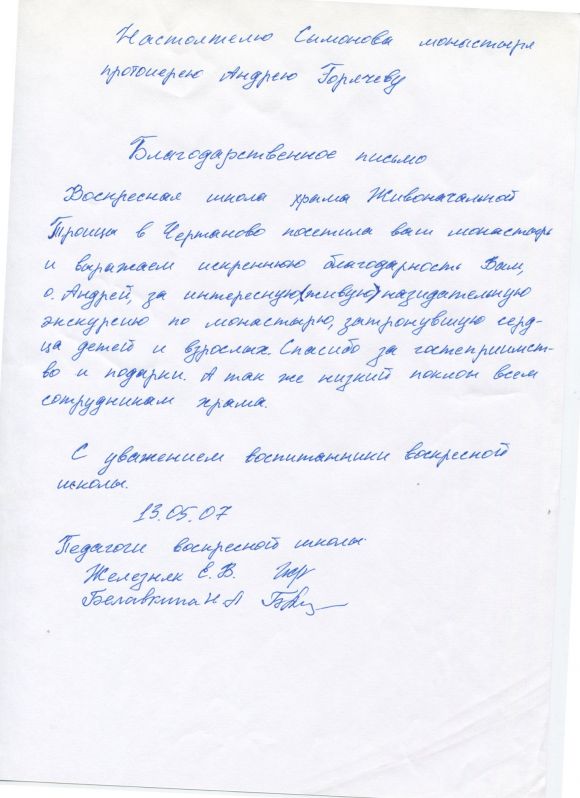 Настоятелю Симонова монастыря
протоиерею Андрею Горячеву
Благодарственное письмо
Воскресная школа храма Живоначальной
Троицы в Чертаново посетила ваш монастырь
и выражаем искреннюю благодарность Вам,
о. Андрей, за интересную (живую) назидательную
экскурсию по монастырю, затронувшую серд-
ца детей и взрослых. Спасибо за гостеприимст-
во и подарки. А так же низкий поклон всем
сотрудникам храма.
С уважением воспитанники воскресной
школы.
13.05.07
Педагоги воскресной школы:
Железняк Е. В.
Белавкина Н А